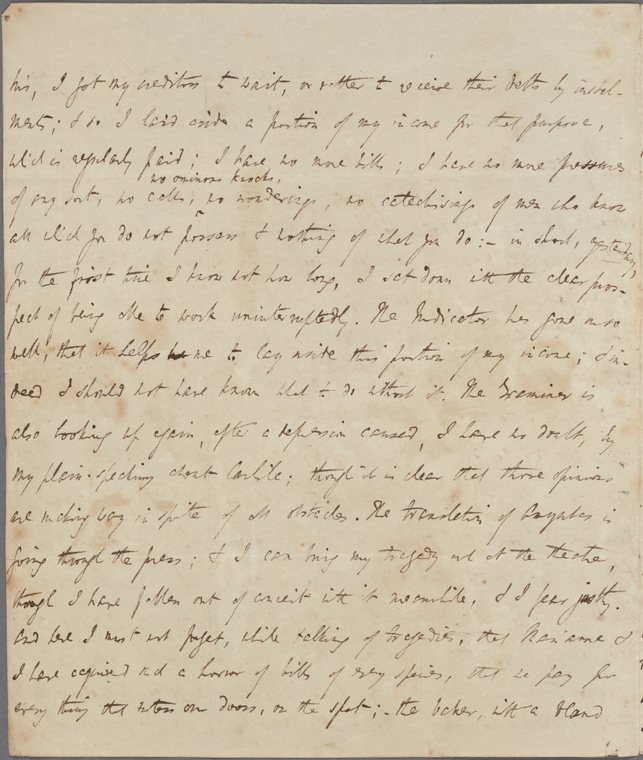 this, I got my creditors to wait, or rather to receive their debts by instal-
ments; & so I laid aside a portion of my income for that purpose,
which is regularly paid; I have no more bills; I have no more pressures
no ominous knocks,
of any sort, no calls, no wonderings, no catechisings of men who know
all which you do not possess & nothing of what you do:- in short, yesterday,
for the first time I know not how long, I sat down with the clear pros-
pect of being able to work uninterruptedly. The Indicator has gone on so
well, that it helps me to lay aside this portion of my income; & in-
deed I should not have known what to do without it. The Examiner is
also looking up again, after a depression caused, I have no doubt, by
my plain-speaking about Carlile; though it is clear that those opinions
are making way in spite of all obstacles. The translation of Amyntas is
going through the press; & I can bring my tragedy out at the theatre,
though I have fallen out of conceit with it meanwhile, & I fear justly.
And here I must not forget, while talking of tragedies, that Marianne &
I have acquired such a horror of bills of every species, that we pay for
every thing that enters our doors, on the spot; - the baker, with a bland